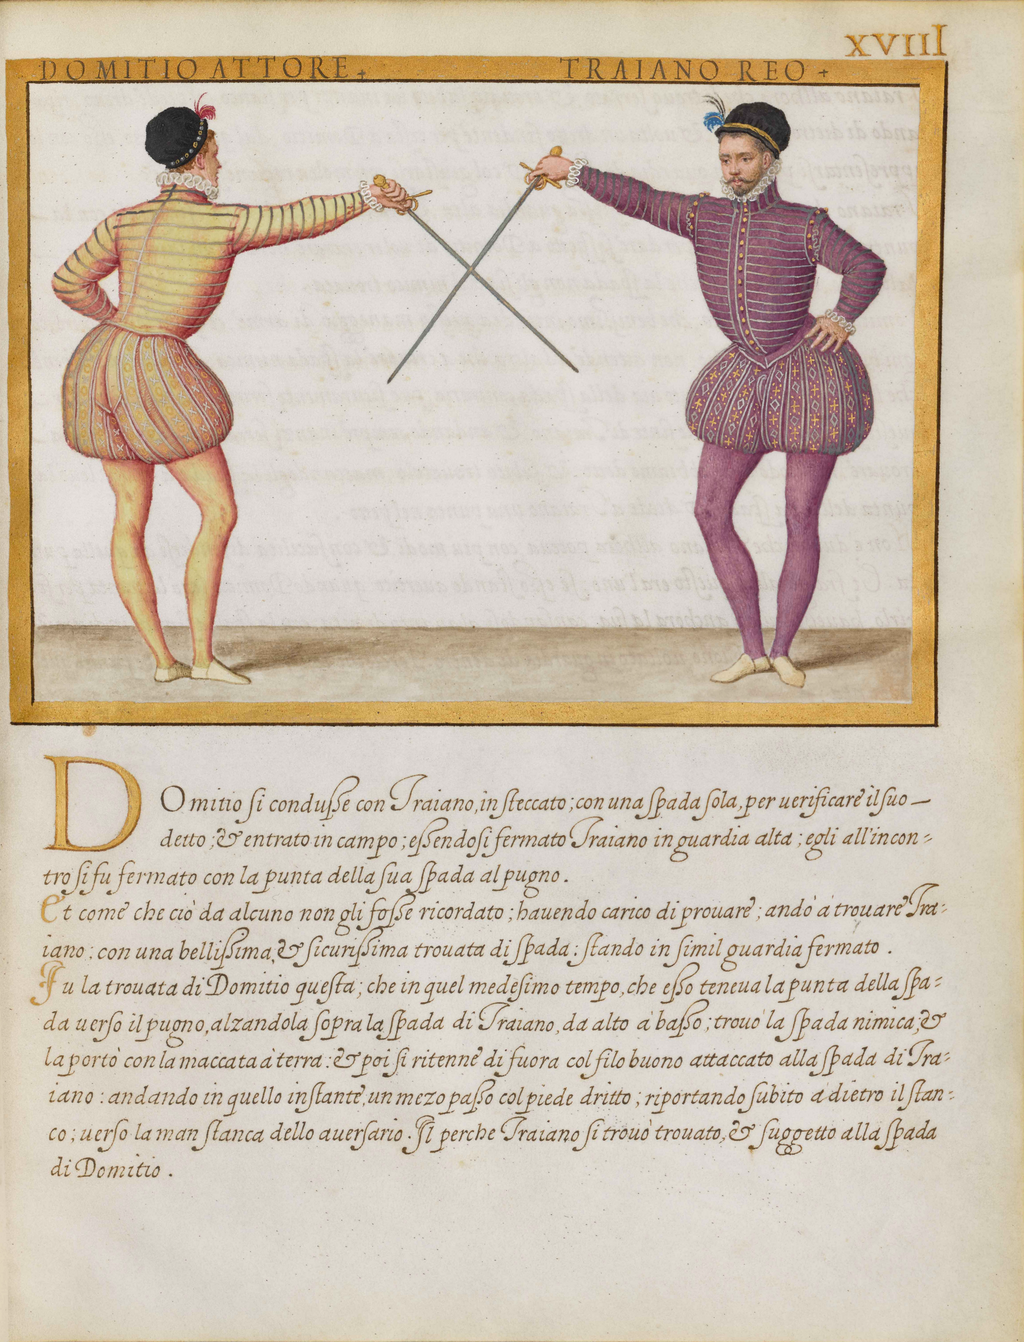 XVIII
DOMITIO ATTORE +
TRAIANO REO +
DOmitio si condusse con Traiano, in steccato; con una spada sola, per uerificare il suo —
detto; & entrato in campo; essendosi fermato Traiano in guardia alta; egli all'incon=
tro si fu fermato con la punta della sua spada al pugno.
Et come che ciò da alcuno non gli fosse ricordato; hauendo carico di prouare; andò à trouare Tra=
iano: con una bellissima, & sicurissima trouata di spada: stando in simil guardia fermato.
Fu la trouata di Domitio questa; che in quel medesimo tempo, che esso teneua la punta della spa=
da uerso il pugno, alzandola sopra la spada di Traiano, da alto à basso; trouò la spada nimica; &
la portò con la maccata à terra: & poi si ritenne di fuora col filo buono attaccato alla spada di Tra=
iano: andando in quello instante, un mezo passo col piede dritto; riportando subito a dietro il stan=
co; uerso la man stanca dello auersario. Si perche Traiano si trouò trouato, & suggetto alla spada
di Domitio.